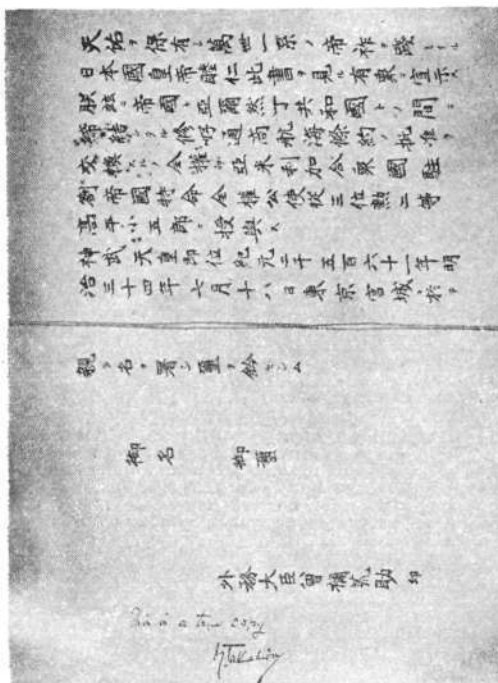 天佑ヲ保有シ萬世一系ノ帝祚ヲ踐ミタル
日本國皇帝睦仁此書ヲ見ル有衆ニ宣示ス
朕茲ニ帝國ト亞爾然丁共和國トノ間ニ
締結シタル修好通商航海條約ノ批准ヲ
交換スルノ全權ヲ亞米利加合衆國駐
劄帝國特命全權公使從三位勲二等
高平小五郎ニ授與ス
神武天皇即位紀元二千五百六十一年明
治三十四年七月十八日東京宮城ニ於テ
親ラ名ヲ署シ璽ヲ鈐セシム
御名 御璽
外務大臣曾禰荒助 印
This is a true copy